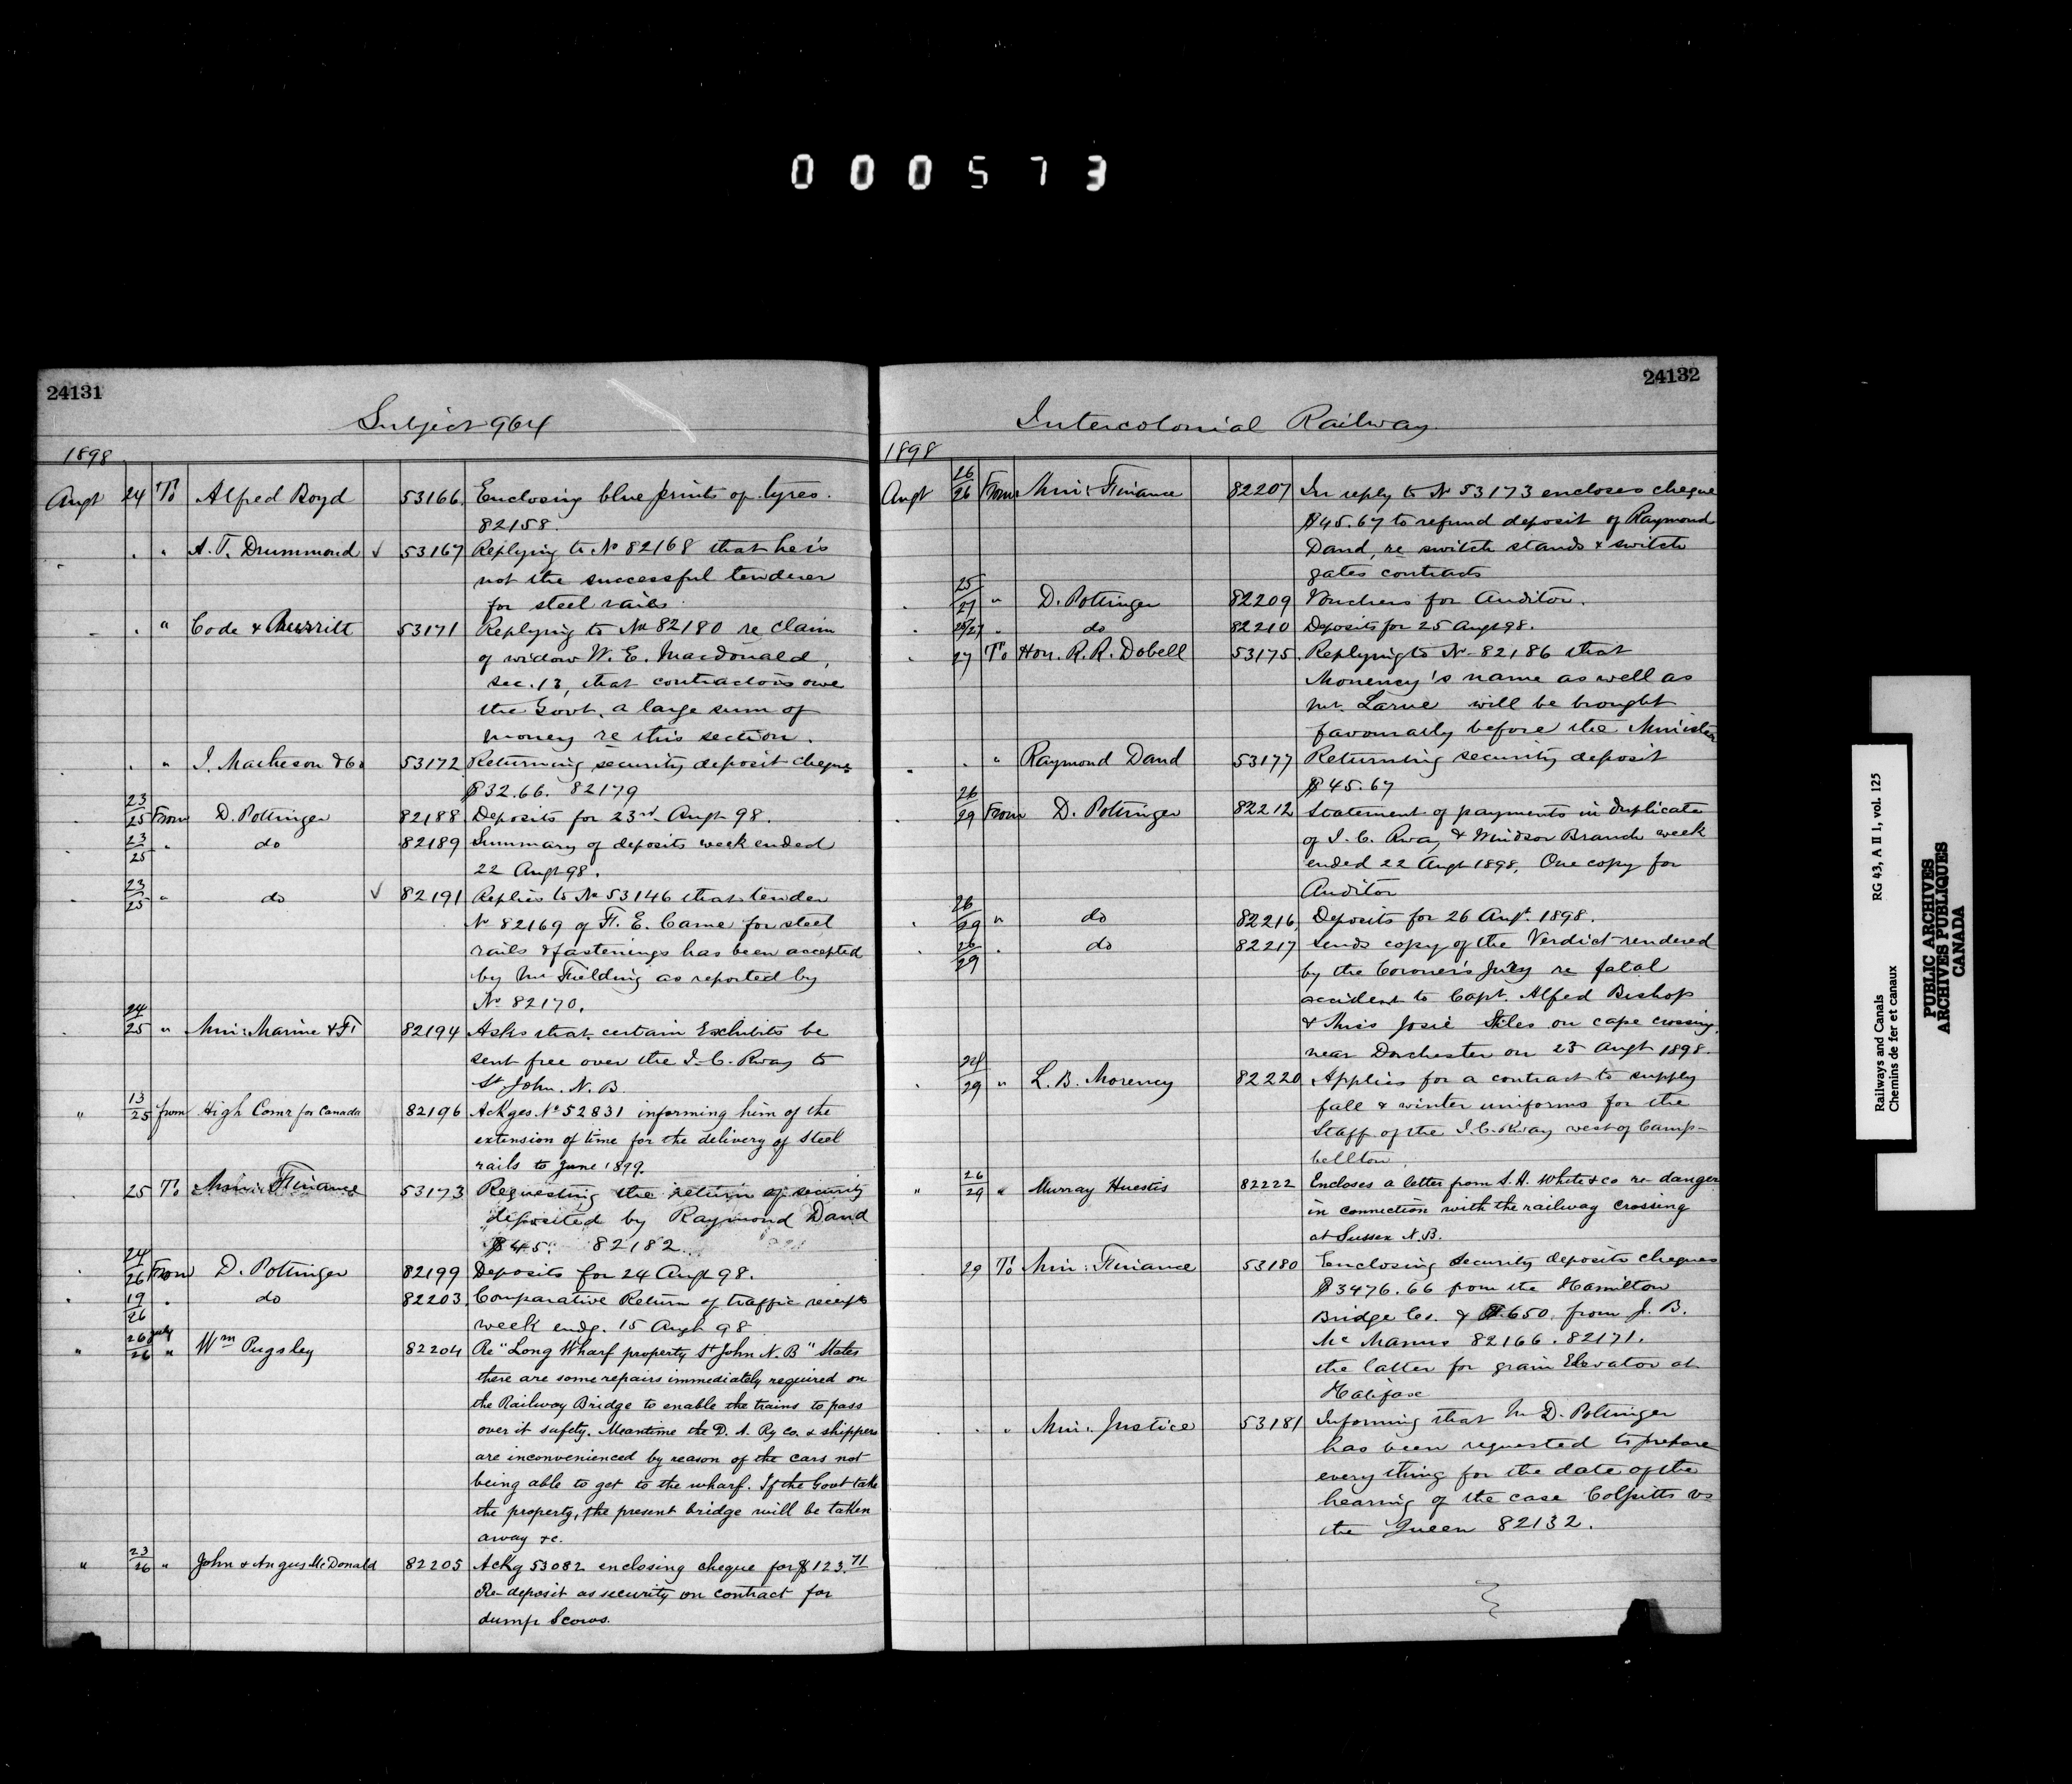 000573
24131
Subject 964
1898
Augt 24 To Alfred Boyd 53166 Enclosing blue prints of tyres.
82158.
" " A. T. Drummond ✓ 53167 Replying to No 82168 that he is
not the successful tenderer
for steel rails.
" " Code & Burritt 53171 Replying to No 82180 re claim
of widow W. E. Macdonald,
sec. 13, that contractors owe
the Govt. a large sum of
money re this section.
" " I. Matheson & Co 53172 Returning security deposit cheque
$32.66. 82179
23/25 From D. Pottinger 82188 Deposits for 23rd Augt 98.
23/25 " do 82189 Summary of deposits week ended
22 Augt 98.
23/25 " do ✓ 82191 Replies to No 53146 that tender
No 82169 of F. E. Came for steel
rails & fastenings has been accepted
by Mr Fielding as reported by
No 82170.
24/25 " Min: Marine & Fi 82194 Asks that certain Exhibits be
sent free over the I. C. Rway to
St John. N. B.
" 13/25 from High Comr for Canada 82196 Ackges No 52831 informing him of the
extension of time for the delivery of Steel
rails to June 1899.
25 To Min: Finance 53173 Requesting the return of security
deposited by Raymond Dand
$45. 82182.
24/26 From D. Pottinger 82199 Deposits for 24 Augt 98.
19/26 " do 82203 Comparative Return of traffic receipts
week endg. 15 Augt 98
" 26 July/26 " Wm Pugsley 82204 Re "Long Wharf property St John N. B" States
there are some repairs immediately required on
the Railway Bridge to enable the trains to pass
over it safety. Meantime the D. A. Ry co. & shippers
are inconvenienced by reason of the cars not
being able to get to the wharf. If the Govt take
the property, the present bridge will be taken
away &c.
" 23/26 " John & Angus McDonald 82205 Ackg 53082 enclosing cheque for $123.71
Re deposit as security on contract for
dump Scows.
24132
Intercolonial Railway
1898
Augt 26/26 From Min: Finance 82207 In reply to No 53173 encloses cheque
$45.67 to refund deposit of Raymond
Dand, re switch stands & switch
gates contracts
25/27 " D. Pottinger 82209 Vouchers for Auditor.
25/27 " do 82210 Deposits for 25 Augt 98.
27 To Hon. R. R. Dobell 53175 Replying to No 82186 that
Morency's name as well as
Mr. Larue will be brought
favourably before the Minister
" " Raymond Dand 53177 Returning security deposit
$45.67
26/29 From D. Pottinger 82212 Statement of payments in duplicate
of I. C. Rway & Windsor Branch week
ended 22 Augt 1898, One copy for
Auditor
26/29 " do 82216 Deposits for 26 Augt. 1898.
26/29 " do 82217 Sends copy of the Verdict rendered
by the Coroner's Jury re fatal
accident to Capt. Alfred Bishop
& Miss Josie Stiles on cape crossing,
near Dorchester on 23 Augt 1898.
29 " L. B. Morency 82220 Applies for a contract to supply
fall & winter uniforms for the
Staff of the I. C. Rway west of Camp-
bellton.
" 26/29 " Murray Huestis 82222 Encloses a letter from S. H. White & co re danger
in connection with the railway crossing
at Sussex N. B.
29 To Min: Finance 53180 Enclosing security deposits cheques
$3476.66 from the Hamilton
Bridge Co. & $650. from J. B.
McManus 82166. 82171.
the latter for grain Elevator at
Halifax
" " Min: Justice 53181 Informing that Mr D. Pottinger
has been requested to prepare
everything for the date of the
hearing of the case Colpitts vs
the Queen 82132.
Railways and Canals RG 43, A II 1, vol. 125
Chemins de fer et canaux
PUBLIC ARCHIVES
ARCHIVES PUBLIQUES
CANADA